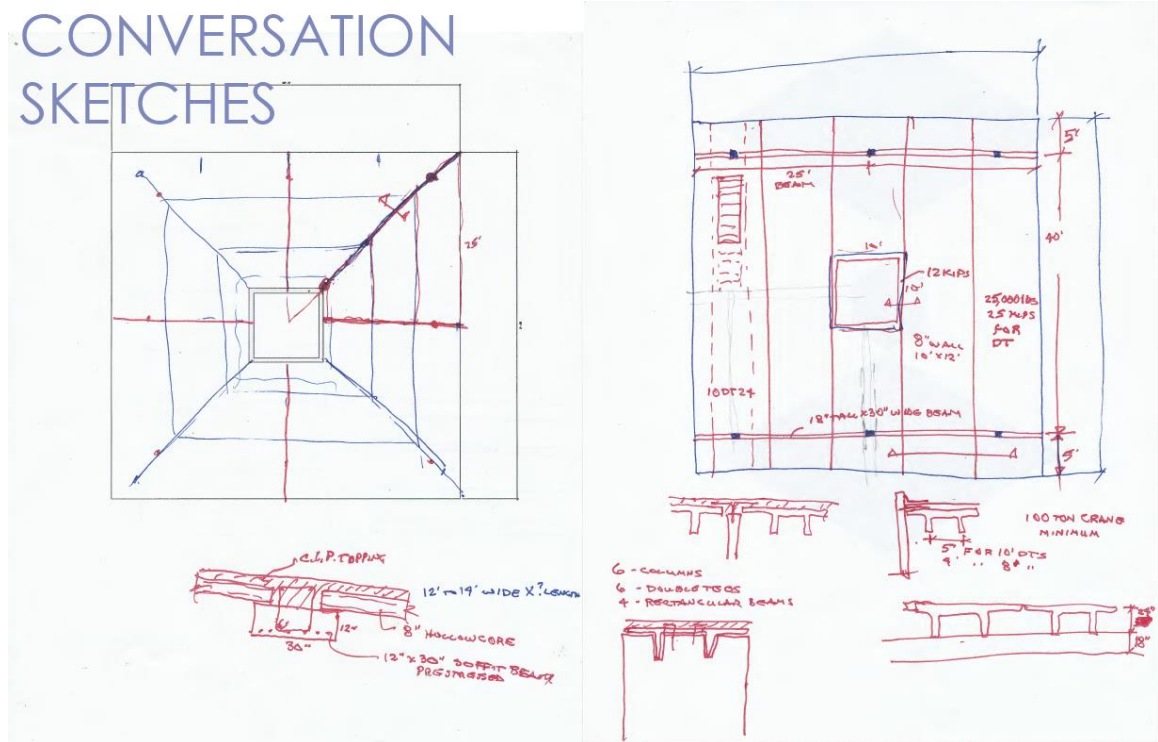 CONVERSATION
SKETCHES
a
25'
C.I.P. TOPPING
12' TO 14' WIDE X ? LENGTH
12"
8" HOLLOWCORE
30"
12" X 30" SOFFIT BEAM
PRESTRESSED
5'
25'
BEAM
40'
10'
12 KIPS
10'
25,000 LBS
25 KIPS
FOR
DT
8" WALL
10' X 12'
10DT24
18" TALL X 30" WIDE BEAM
5'
100 TON CRANE
MINIMUM
5' FOR 10' DTS
4' " 8' "
6 - COLUMNS
6 - DOUBLE TEES
4 - RECTANGULAR BEAMS
24"
18"